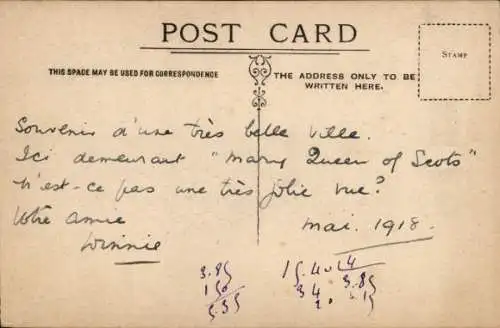 POST CARD
THIS SPACE MAY BE USED FOR CORRESPONDENCE
THE ADDRESS ONLY TO BE
WRITTEN HERE.
STAMP
Souvenir d'une très belle ville.
Ici demeurant "Mary Queen of Scots"
N'est-ce pas une très jolie vue?
Votre amie
Winnie
Mai. 1918.
3.85
150
5.35
15.4.14
34 3.85